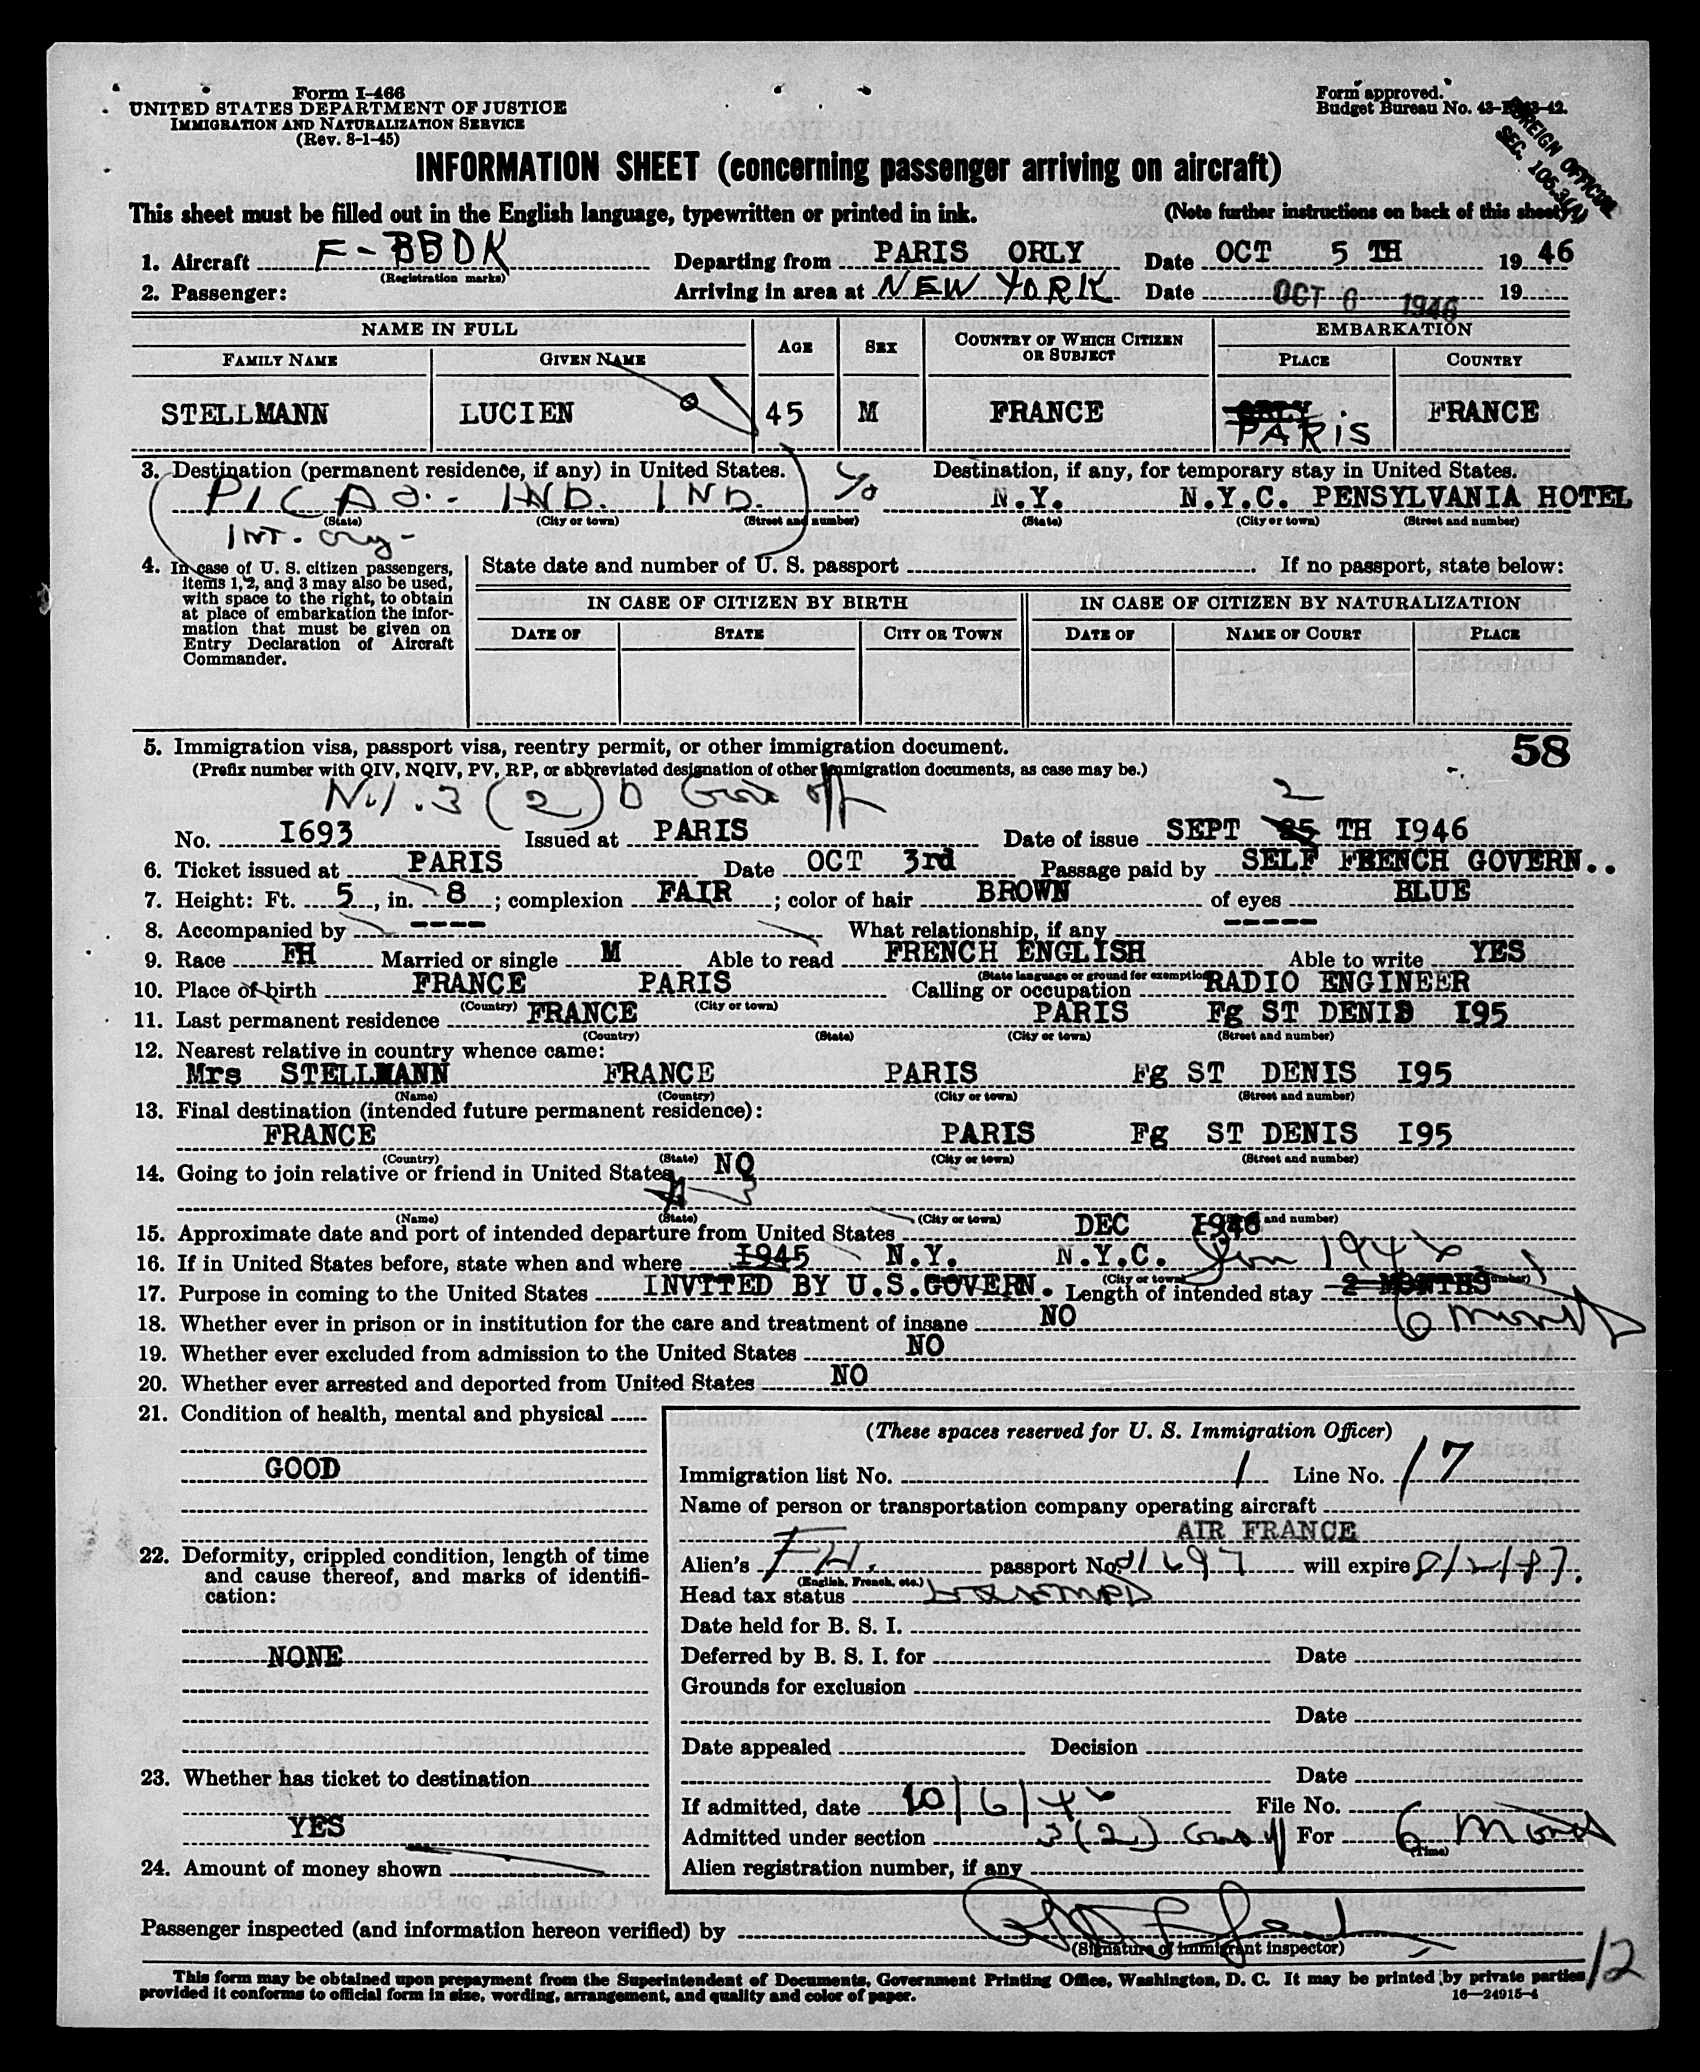 Form I-466
UNITED STATES DEPARTMENT OF JUSTICE
IMMIGRATION AND NATURALIZATION SERVICE
(Rev. 8-1-45)
Form approved.
Budget Bureau No.
FOREIGN OFFICER
SEC. 105.3(A)
INFORMATION SHEET (concerning passenger arriving on aircraft)
This sheet must be filled out in the English language, typewritten or printed in ink. (Note further instructions on back of this sheet)
1. Aircraft F-BBDK Departing from PARIS ORLY Date OCT 5 TH 1946
(Registration marks)
2. Passenger: Arriving in area at NEW YORK Date OCT 6 1946 19
NAME IN FULL AGE SEX COUNTRY OF WHICH CITIZEN OR SUBJECT EMBARKATION
FAMILY NAME GIVEN NAME PLACE COUNTRY
STELLMANN LUCIEN 45 M FRANCE ORLY FRANCE
PARIS
3. Destination (permanent residence, if any) in United States. Destination, if any, for temporary stay in United States.
N.Y. N.Y.C. PENSYLVANIA HOTEL
(State) (City or town) (Street and number) (State) (City or town) (Street and number)
4. In case of U. S. citizen passengers, items 1, 2, and 3 may also be used, with space to the right, to obtain at place of embarkation the information that must be given on Entry Declaration of Aircraft Commander.
State date and number of U. S. passport If no passport, state below:
IN CASE OF CITIZEN BY BIRTH IN CASE OF CITIZEN BY NATURALIZATION
DATE OF STATE CITY OR TOWN DATE OF NAME OF COURT PLACE
5. Immigration visa, passport visa, reentry permit, or other immigration document. 58
(Prefix number with QIV, NQIV, PV, RP, or abbreviated designation of other immigration documents, as case may be.)
3 (2)
2
No. I693 Issued at PARIS Date of issue SEPT 25 TH I946
6. Ticket issued at PARIS Date OCT 3rd Passage paid by SELF FRENCH GOVERN..
7. Height: Ft. 5, in. 8; complexion FAIR; color of hair BROWN of eyes BLUE
8. Accompanied by ---- What relationship, if any -----
9. Race FH Married or single M Able to read FRENCH ENGLISH Able to write YES
(State language or ground for exemption)
10. Place of birth FRANCE PARIS Calling or occupation RADIO ENGINEER
(Country) (City or town)
11. Last permanent residence FRANCE PARIS Fg ST DENIS I95
(Country) (State) (City or town) (Street and number)
12. Nearest relative in country whence came:
Mrs STELLMANN FRANCE PARIS Fg ST DENIS I95
(Name) (Country) (City or town) (Street and number)
13. Final destination (intended future permanent residence):
FRANCE PARIS Fg ST DENIS I95
(Country) (State) (City or town) (Street and number)
14. Going to join relative or friend in United States NO
(Name) (State) (City or town) (Street and number)
15. Approximate date and port of intended departure from United States DEC I946
16. If in United States before, state when and where I945 N.Y. N.Y.C.
(City or town)
17. Purpose in coming to the United States INVITED BY U.S.GOVERN. Length of intended stay 2 MONTHS
6 months
18. Whether ever in prison or in institution for the care and treatment of insane NO
19. Whether ever excluded from admission to the United States NO
20. Whether ever arrested and deported from United States NO
21. Condition of health, mental and physical
GOOD
22. Deformity, crippled condition, length of time and cause thereof, and marks of identification:
NONE
23. Whether has ticket to destination
YES
24. Amount of money shown
(These spaces reserved for U. S. Immigration Officer)
Immigration list No. 1 Line No. 17
Name of person or transportation company operating aircraft
AIR FRANCE
Alien's FH. passport No. will expire
(English, French, etc.)
Head tax status
Date held for B. S. I.
Deferred by B. S. I. for Date
Grounds for exclusion
Date
Date appealed Decision
Date
If admitted, date 10/6/46 File No.
Admitted under section 3(2) For 6 months
(Time)
Alien registration number, if any
Passenger inspected (and information hereon verified) by
(Signature of immigrant inspector)
12
This form may be obtained upon prepayment from the Superintendent of Documents, Government Printing Office, Washington, D. C. It may be printed by private parties
provided it conforms to official form in size, wording, arrangement, and quality and color of paper. 16—24915-4